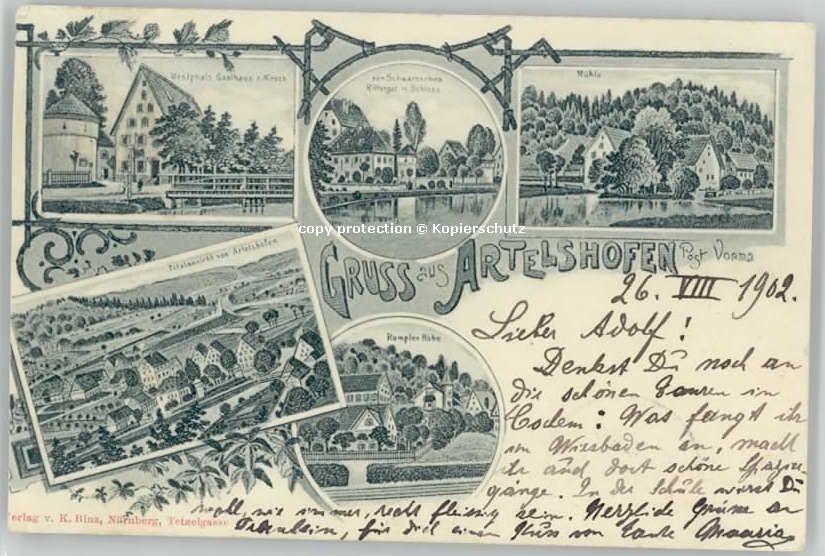 Westphals Gasthaus z. Hirsch
von Schwarz'sches
Rittergut u. Schloss
Mühle
copy protection © Kopierschutz
GRUSS aus ARTELSHOFEN Post Vorra
Totalansicht von Artelshofen
Rampler Höhe
26. VIII 1902.
Lieber Adolf!
Denkst Du noch an
die schönen Touren in
: Was fangt ihr
in Wiesbaden an, macht
ihr auch dort schöne Spazier
gänge. In der Schule wirst Du
wohl, wie immer, recht fleißig sein. Herzliche Grüße an
für dich einen Kuss von Tante Maaria
Verlag v. K. Binz, Nürnberg, Tetzelgasse